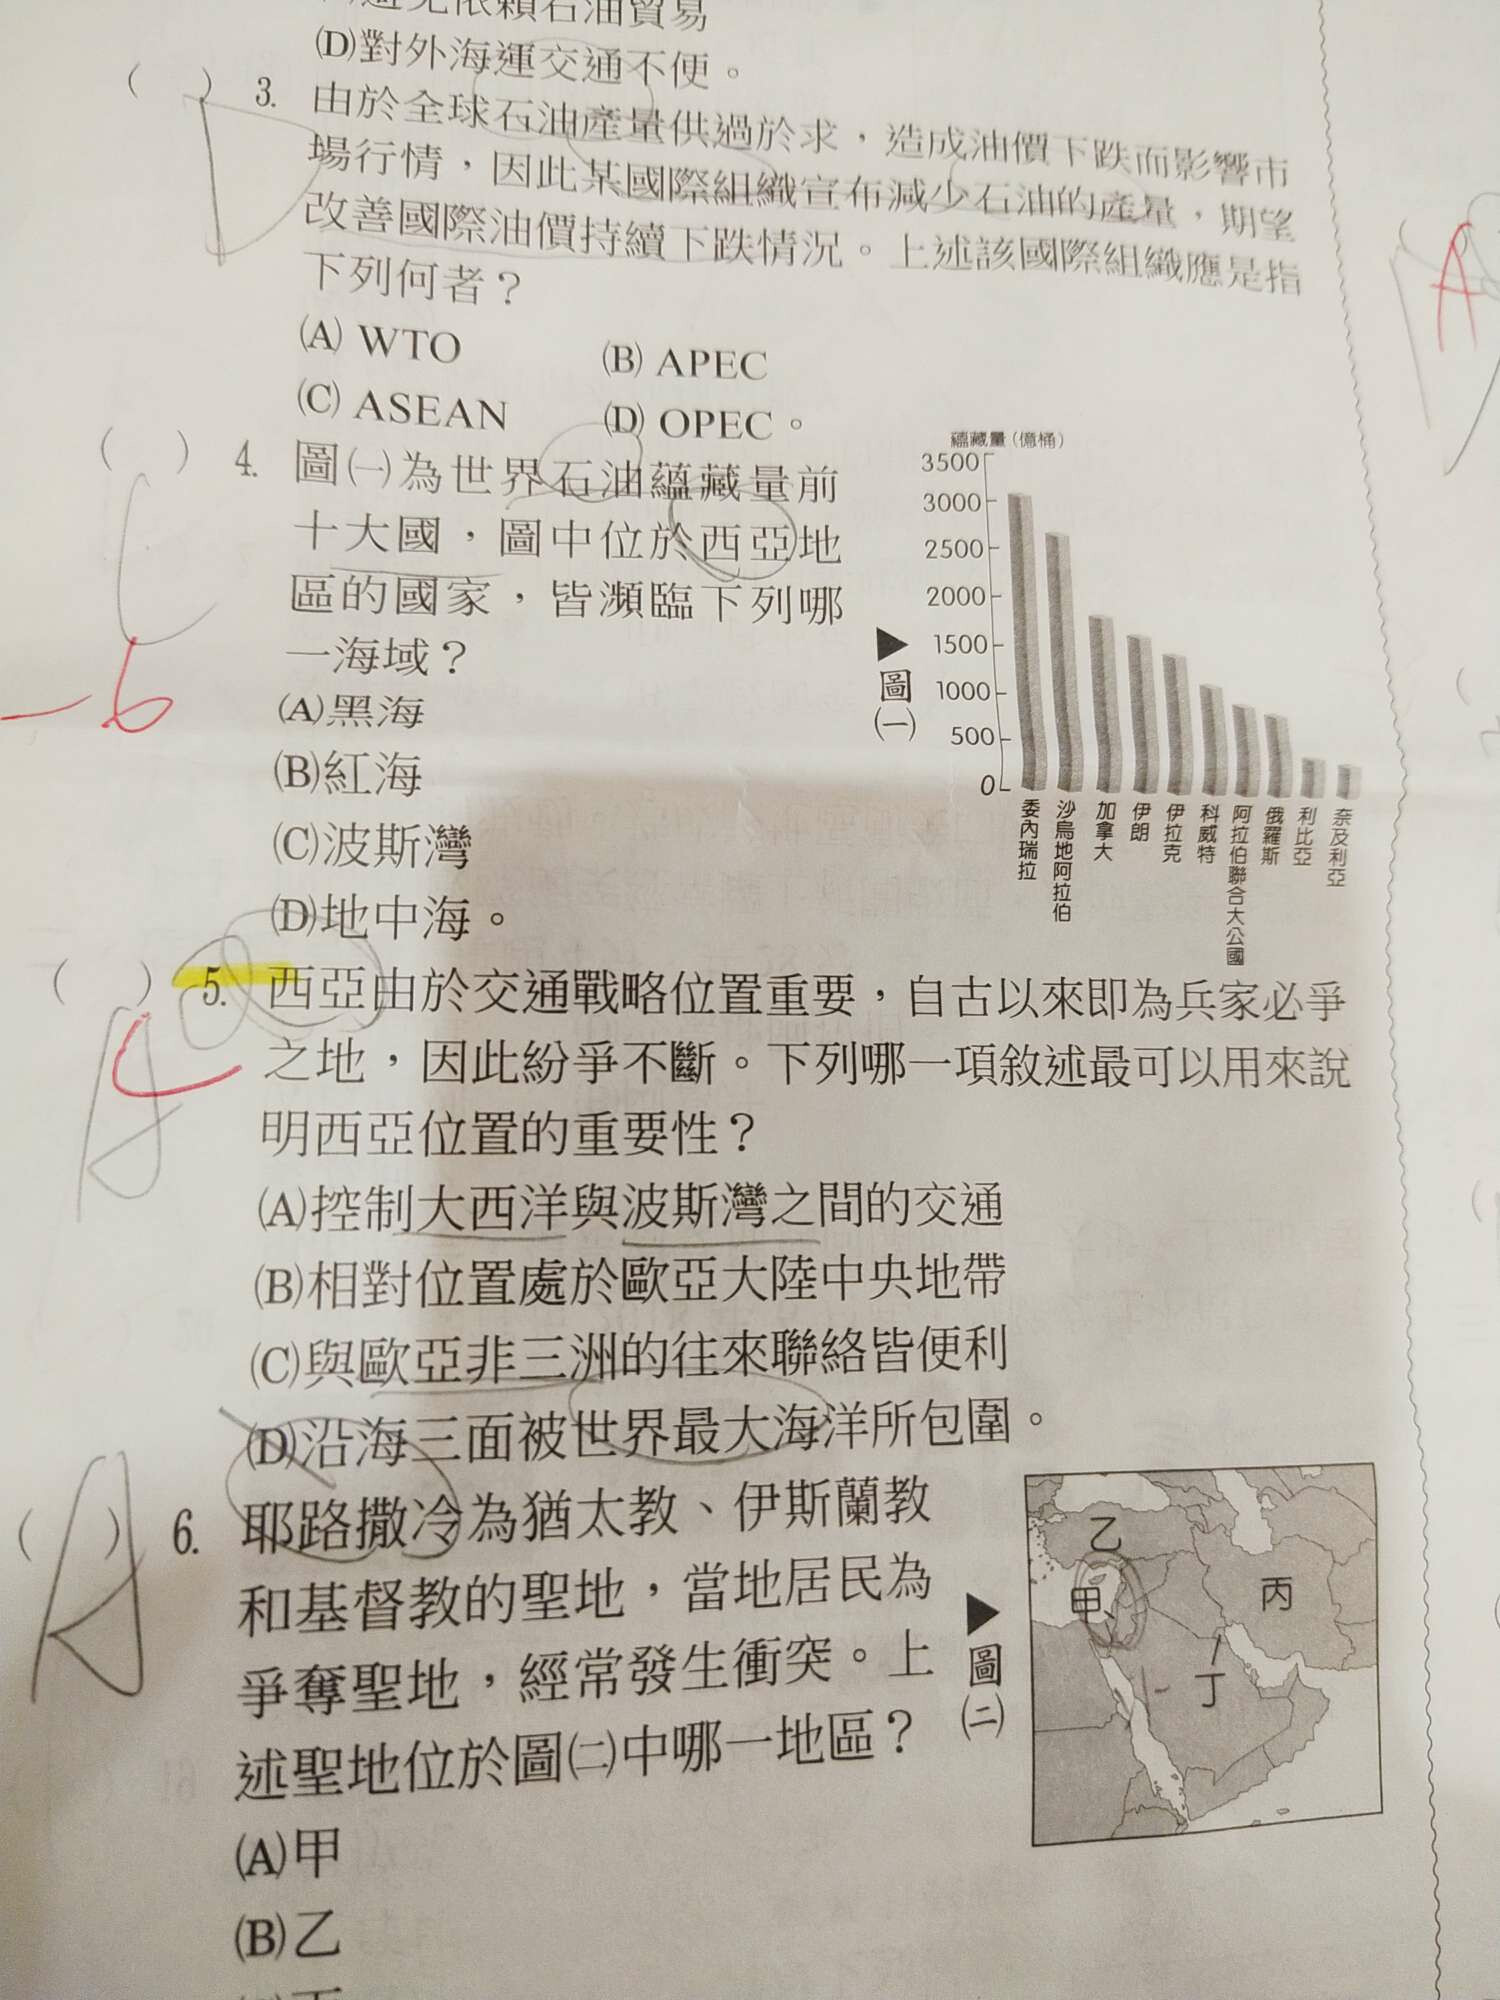 避免依賴石油貿易
(D)對外海運交通不便。
( ) 3. 由於全球石油產量供過於求，造成油價下跌而影響市
場行情，因此某國際組織宣布減少石油的產量，期望
改善國際油價持續下跌情況。上述該國際組織應是指
下列何者？
(A) WTO (B) APEC
(C) ASEAN (D) OPEC。
D
( ) 4. 圖㈠為世界石油蘊藏量前
十大國，圖中位於西亞地
區的國家，皆瀕臨下列哪
一海域？
(A)黑海
(B)紅海
(C)波斯灣
(D)地中海。
C
-6
蘊藏量(億桶)
3500
3000
2500
2000
1500
1000
500
0
委內瑞拉
沙烏地阿拉伯
加拿大
伊朗
伊拉克
科威特
阿拉伯聯合大公國
俄羅斯
利比亞
奈及利亞
圖㈠
( ) 5. 西亞由於交通戰略位置重要，自古以來即為兵家必爭
之地，因此紛爭不斷。下列哪一項敘述最可以用來說
明西亞位置的重要性？
(A)控制大西洋與波斯灣之間的交通
(B)相對位置處於歐亞大陸中央地帶
(C)與歐亞非三洲的往來聯絡皆便利
(D)沿海三面被世界最大海洋所包圍。
A
C
( ) 6. 耶路撒冷為猶太教、伊斯蘭教
和基督教的聖地，當地居民為
爭奪聖地，經常發生衝突。上
述聖地位於圖㈡中哪一地區？
(A)甲
(B)乙
A
圖㈡
乙
甲
丙
丁
A